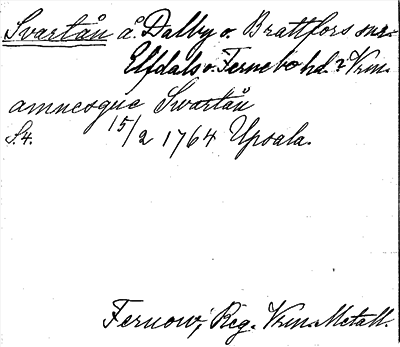 Svartån å. Dalby o. Brattfors snr
Elfdals o. Fernebo hd. Vrm.
amnesque Swartån
S. 4. 15/2 1764 Upsala.
Fernow, Reg. Vrm. Metall.